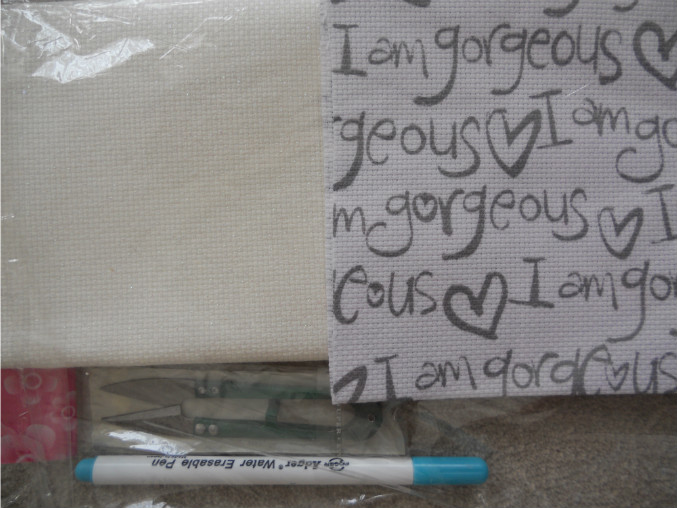 I am gorgeous
geous I am go
m gorgeous I
eous I am gor
I am gorgeous
Adger® Water Erasable Pen